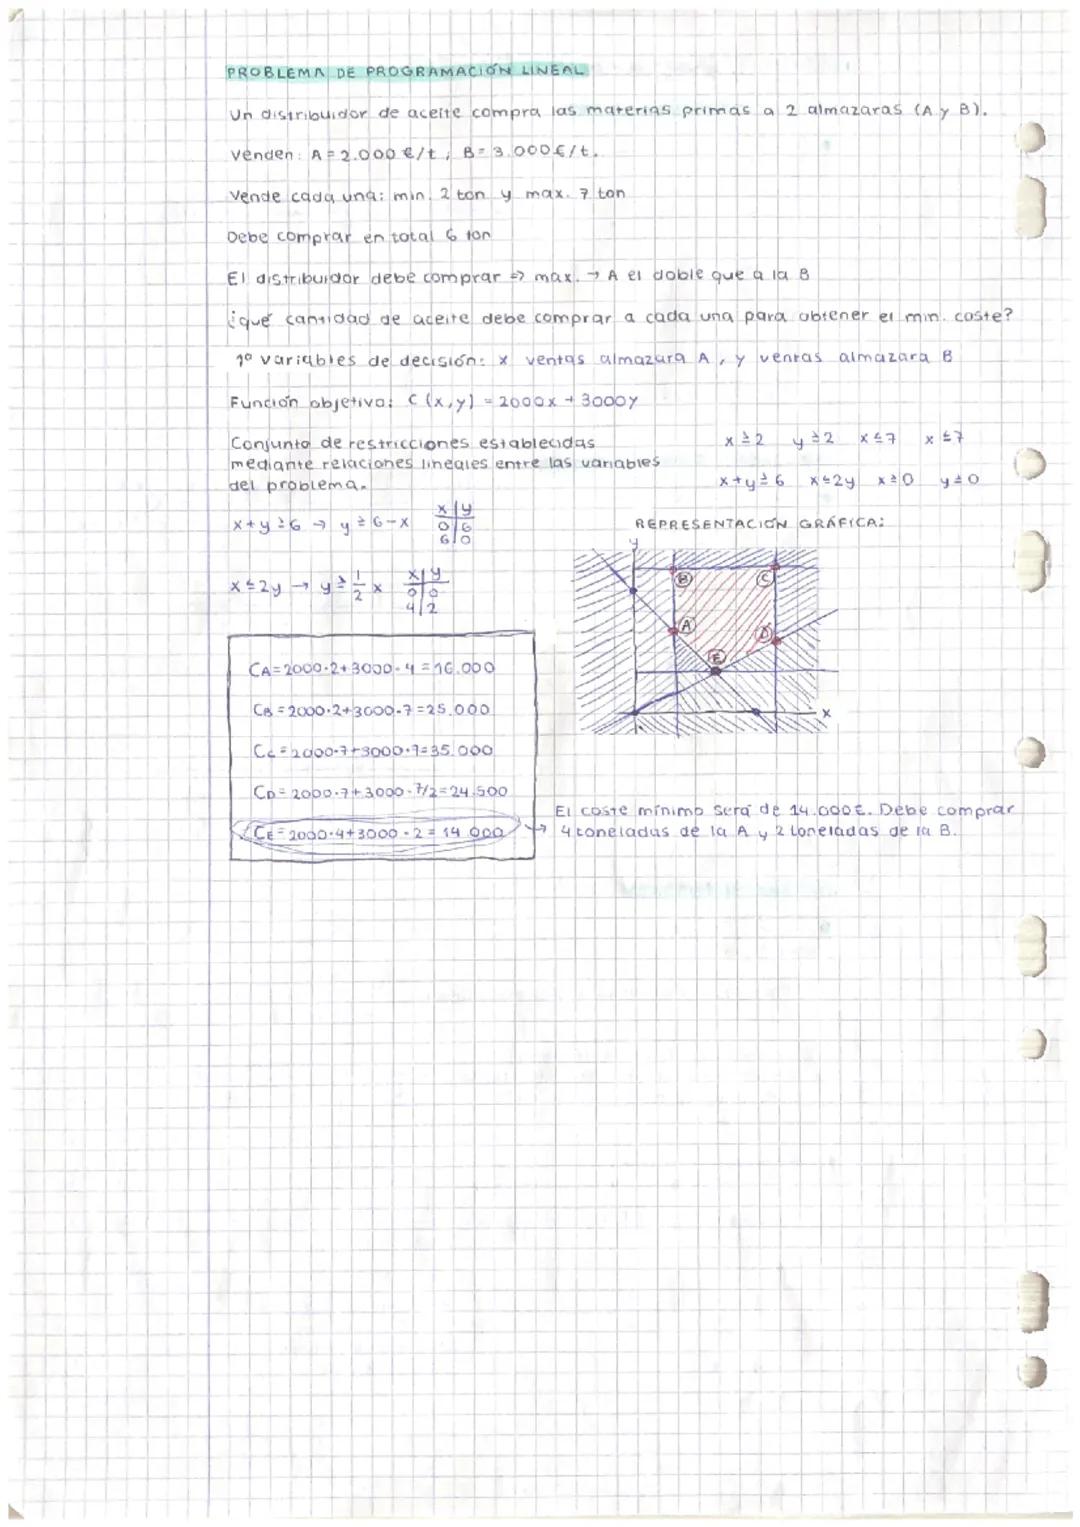 PROBLEMA DE PROGRAMACIÓN LINEAL
Un distribuidor de aceite compra las materias primas a 2 almazaras (A y B).
Venden: A = 2.000 €/t, B = 3.000 €/t.
Vende cada una: min. 2 ton y max. 7 ton
Debe comprar en total 6 ton
El distribuidor debe comprar => max. → A el doble que a la B
¿qué cantidad de aceite debe comprar a cada una para obtener el min. coste?
1º variables de decisión: x ventas almazara A, y ventas almazara B
Función objetivo: C (x,y) = 2000x + 3000y
Conjunto de restricciones establecidas
mediante relaciones lineales entre las variables
del problema.
x ≥ 2 y ≥ 2 x ≤ 7 x ≤ 7
x+y ≥ 6 x ≤ 2y x ≥ 0 y ≥ 0
x+y ≥ 6 → y ≥ 6-x
x | y
0 | 6
6 | 0
x ≤ 2y → y ≥ 1/2 x
x | y
0 | 0
4 | 2
REPRESENTACIÓN GRÁFICA:
y
B C
A D
E
x
CA = 2000·2 + 3000·4 = 16.000
CB = 2000·2 + 3000·7 = 25.000
CC = 2000·7 + 3000·7 = 35.000
CD = 2000·7 + 3000·7/2 = 24.500
CE = 2000·4 + 3000·2 = 14.000 →
El coste mínimo será de 14.000€. Debe comprar
4 toneladas de la A y 2 toneladas de la B.